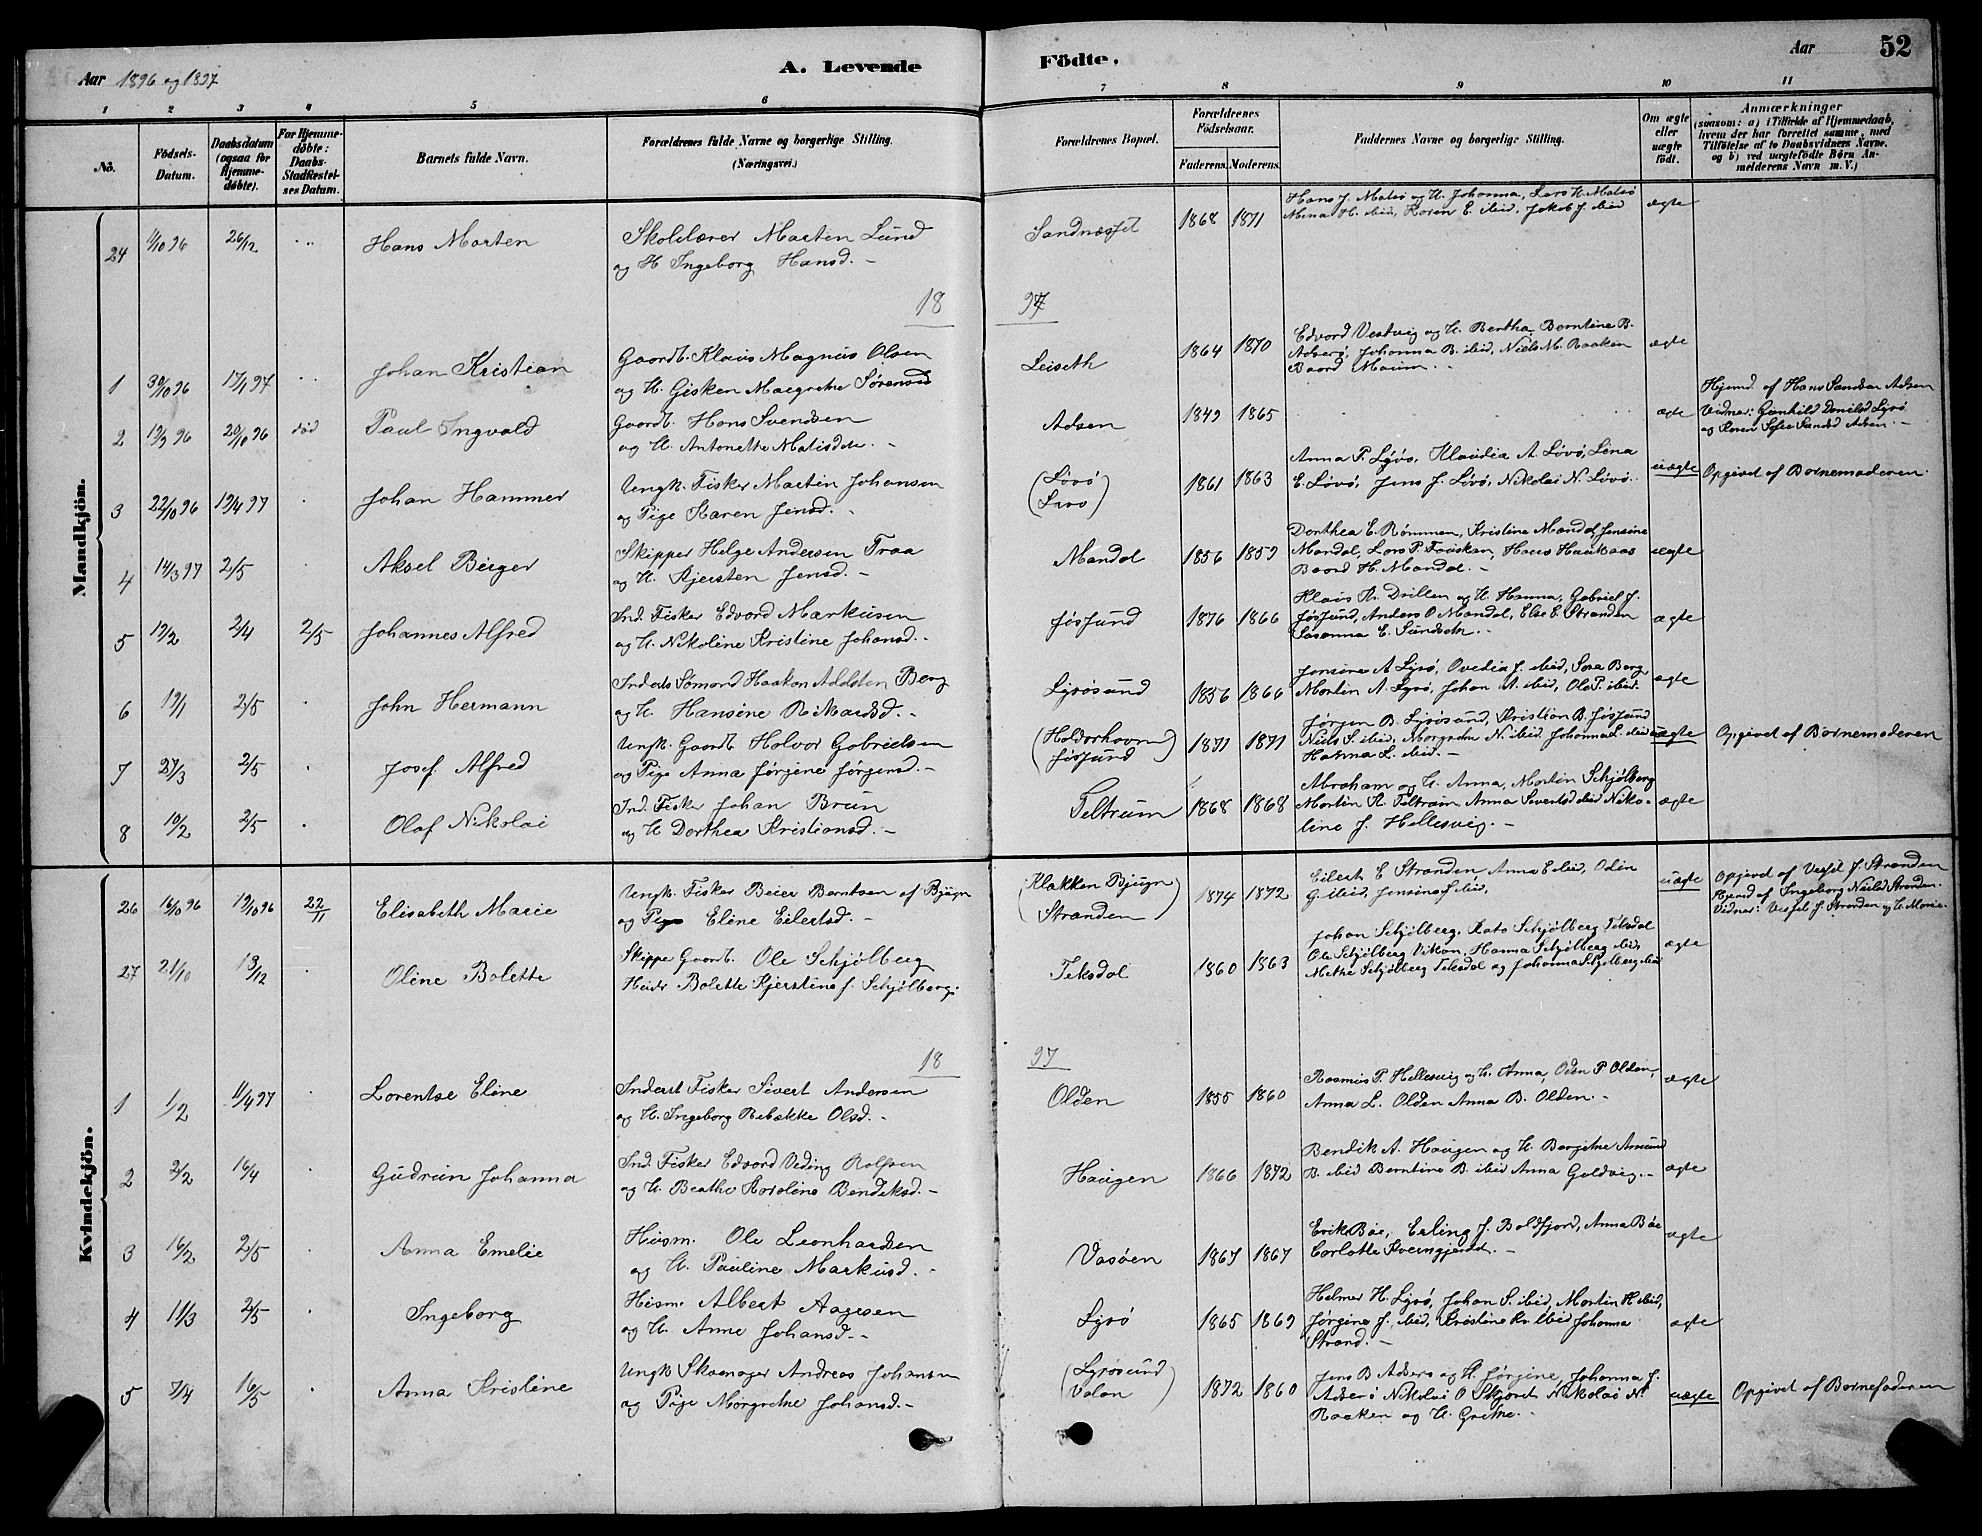 Aar 1896 og 1897
A. Levende
Födte.
Aar
52
1 2 3 4 5 6 7 8 9 10 11
No.
Födsels-
Datum.
Daabsdatum
(ogsaa for
Hjemme-
døbte).
For Hjemme-
døbte:
Daabs-
Stadfæstel-
ses Datum.
Barnets fulde Navn.
Forældrenes fulde Navne og borgerlige Stilling.
(Næringsvei.)
Forældrenes Bopæl.
Forældrenes
Födselsaar.
Faderens. Moderens.
Faddernes Navne og borgerlige Stilling.
Om ægte
eller
uægte
født.
Anmærkninger
(saasom: a) i Tilfælde af Hjemmedaab,
hvem der har forrettet samme, med
Tilføielse af to Daabsvidners Navne,
og b) ved uægtefödte Börn An-
melderens Navn m. V.)
Mandkjön.
24 11/10 96 26/12 " Hans Morten
Skolelærer Morten Lund
og H Ingeborg Hansd. -
Sandnæsset 1868 1871
Hans J. Malsø og H. Johanna, Lars H. Malsø
Mina H. ibid, Karen E. ibid, Jakob J. ibid
ægte
18 97
1 30/10 96 17/1 97 Johan Kristian
Gaardb. Klaus Magnus Olsen
og H. Gisken Margrethe Sørensd
Leiseth 1864 1870
Edvard Vestvig og H. Bertha, Berntine B.
Adserø, Johanna B. ibid, Niels M. Raaken
Baard Maum. -
ægte
2 19/9 96 20/10 96 død Paul Ingvald
Gaardb. Hans Svendsen
og H. Antonette Matisdtr. -
Adsen 1849 1865
ægte
Hjemd. af Hans Adsen
Vidner: Gunhild Danielsd Lyrø
og Karen Sofie Adsen. -
3 22/10 96 19/4 97 Johan Hammer
Ungk. Fisker Martin Johansen
og Pige Karen Jensd. -
(Lovø) 1861 1863
Anna P. Lyrø, Klaudia A. Lovø, Lena
E. Lovø, Jens J. Lovø, Nikolai N. Lovø.
uægte Opgivet af Barnemoderen.
4 14/3 97 2/5 Aksel Birger
Skipper Helge Andersen Traa
og H. Kjersten Jensd. -
Mandal 1856 1859
Dorthea E. Rømmen, Kristine Mandal, Jensine
Mandal, Lars P. Hans Haukaas
Baard H. Mandal. -
ægte
5 19/2 2/4 2/5 Johannes Alfred
Ind. Fisker Edvard Markusen
og H. Nikoline Kristine Johansd. -
Jøssund 1876 1866
Klaus Kr. Drillen og H. Hanna, Gabriel J.
Jøssund, Anders O Mandal, Else E. Stranden
Susanna E. -
ægte
6 19/1 2/5 John Hermann
Inderst Sømand Haakon Berg
og H. Hansine Rikardsd. -
Lyrøsund 1856 1866
Jensine A Lyrø, Ovedia J. ibid, Sara Berg,
Martin A. Lyrø, Johan A. ibid, Ole P. ibid.
ægte
7 27/3 2/5 Josef Alfred
Ungk. Gaardb. Halvor Gabrielsen
og Pige Anna Jørgine Jørgensd. -
(Holdorhavn)
(Jøssund) 1871 1871
Jørgen B. Lyrøsund, Kristian B. Jøssund
Niels S. ibid, Margrethe N. ibid, Johanna L. ibid
Hanna L. ibid. -
uægte Opgivet af Barnemoderen
8 10/2 2/5 Olaf Nikolai
Ind. Fisker Johan Brun
og H Dorthea Kristiansd. -
Teltrum 1868 1868
Abraham og H. Anna, Morten Schjølberg
Martin K. Teltrum, Anna Sivertsd ibid, Niko-
line J. Hellesvig. -
ægte
Kvindekjön.
26 16/10 96 19/10 96 22/11 Elisabeth Marie
Ungk. Fisker Beier Berntsen af Bjugn
og Pige Eline Eilertsd. -
(Klakken Bjugn)
Stranden 1874 1872
Eilert E Stranden, Anna E ibid, Odin
G. ibid, Jensine J. ibid,
uægte
Opgivet af Vessel J. Stranden
Hjemd af Ingeborg Nielsd Stranden.
Vidner: Vessel J. Stranden og H. Marie.
27 21/10 13/12 Oline Bolette
Skipper Gaardb. Ole Schjølberg
Hustr Bolette Kjerstine f. Schjølberg.
Teksdal 1860 1863
Johan Schjølberg, Schjølberg Teksdal
Ole Schjølberg Viklan, Hanna Schjølberg ibid,
Methe Schjølberg Teksdal og Johanna Schjølberg ibid
ægte
18 97
1 1/2 11/4 97 Lorentse Eline
Inderst Fisker Sivert Andersen
og H. Ingeborg Rebekke Olsd. -
Olden 1855 1860
Rasmus P. Hellesvig og H. Anna, Oden P Olden,
Anna L. Olden Anna B. Olden. -
ægte
2 2/2 16/4 Gudrun Johanna
Ind. Fisker Edvard Veding Rolfsen
og H. Beathe Karoline Bendiksd. -
Haugen 1866 1872
Bendik A. Haugen og H. Bergitne Amund
B. ibid Berntine B. ibid Anna Goldvig. -
ægte
3 16/2 2/5 Anna Emelie
Husm. Ole Leonhardsen
og H. Pauline Markusd. -
Vasøen 1867 1867
Erik Bøe, Erling J. Boldfjord, Anna Bøe
Carlotte -
ægte
4 11/3 2/5 Ingeborg
Husm. Albert Aagesen
og H. Anne Johansd. -
Lyrø 1865 1869
Helmer H. Lyrø, Johan S. ibid, Morten H ibid,
Jørgine J. ibid, Kristine Kr. ibid Johanna
Strand. -
ægte
5 7/4 16/5 Anna Kristine
Ungk Skomager Andreas Johansen
og Pige Margrethe Johansd. -
(Lyrøsund)
Valan 1872 1860
Jens B Adserø og H. Jørgine, Johanna J.
Adserø Nikolai O Nikolai N.
Raaken og H. Grethe. -
uægte Opgivet af Barnefaderen